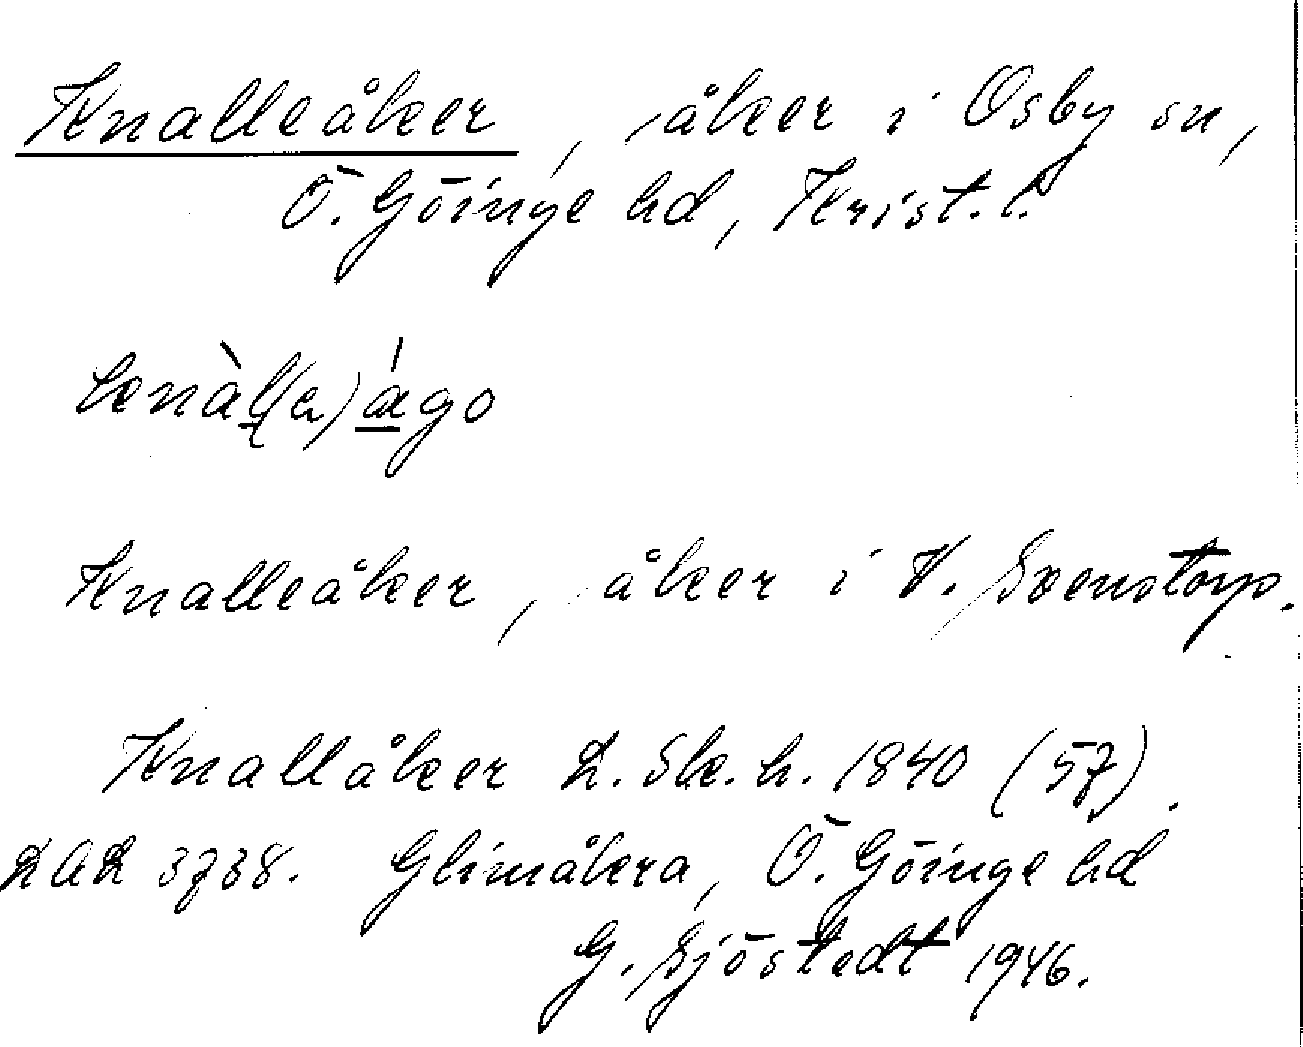 Knalleåker, åker i Osby sn,
Ö. Göinge hd, Krist. l.
Knalleåker, åker i V. Svenstorp.
Knallåker L. Sk. h. 1840 (57).
LAL 3738. Glimåkra, Ö. Göinge hd
G. Sjöstedt 1946.